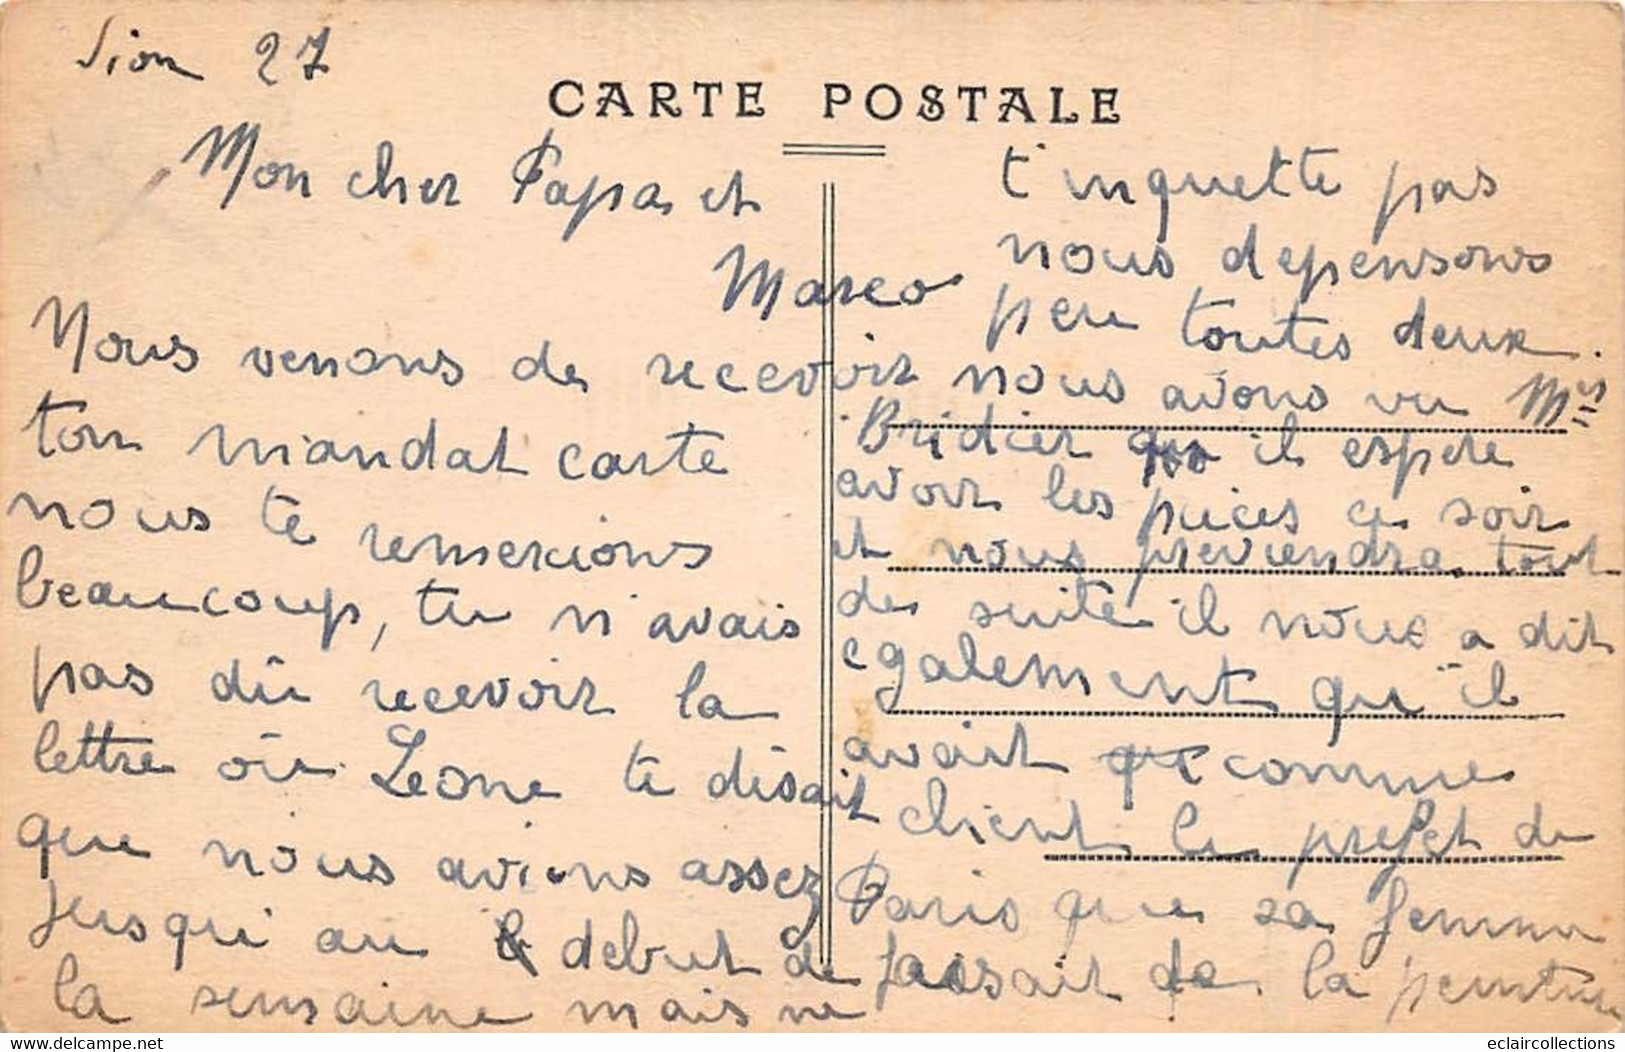 Sion 27
CARTE POSTALE
Mon cher Papa et
Marco
Nous venons de recevoir
ton mandat carte
nous te remercions
beaucoup, tu n'avais
pas dû recevoir la
lettre où Leone te disait
que nous avions assez
jusqu'au debut de
la semaine mais ne
t'inquette pas
nous depensons
peu toutes deux.
nous avons vu Mes
Bridier il espere
avoir les pieces ce soir
et nous previendra tout
de suite il nous a dit
egalement qu'il
avait comme
client le prefet de
Paris que sa femme
faisait de la peinture
eclaircollections